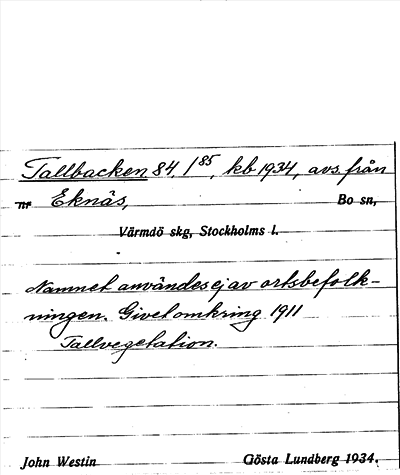 Tallbacken 84, 1⁸⁵, kb 1934, avs. från
nr Eknäs, Bo sn,
Värmdö skg, Stockholms l.
Namnet användes ej av ortsbefolk-
ningen. Givet omkring 1911
Tallvegetation.
John Westin Gösta Lundberg 1934.